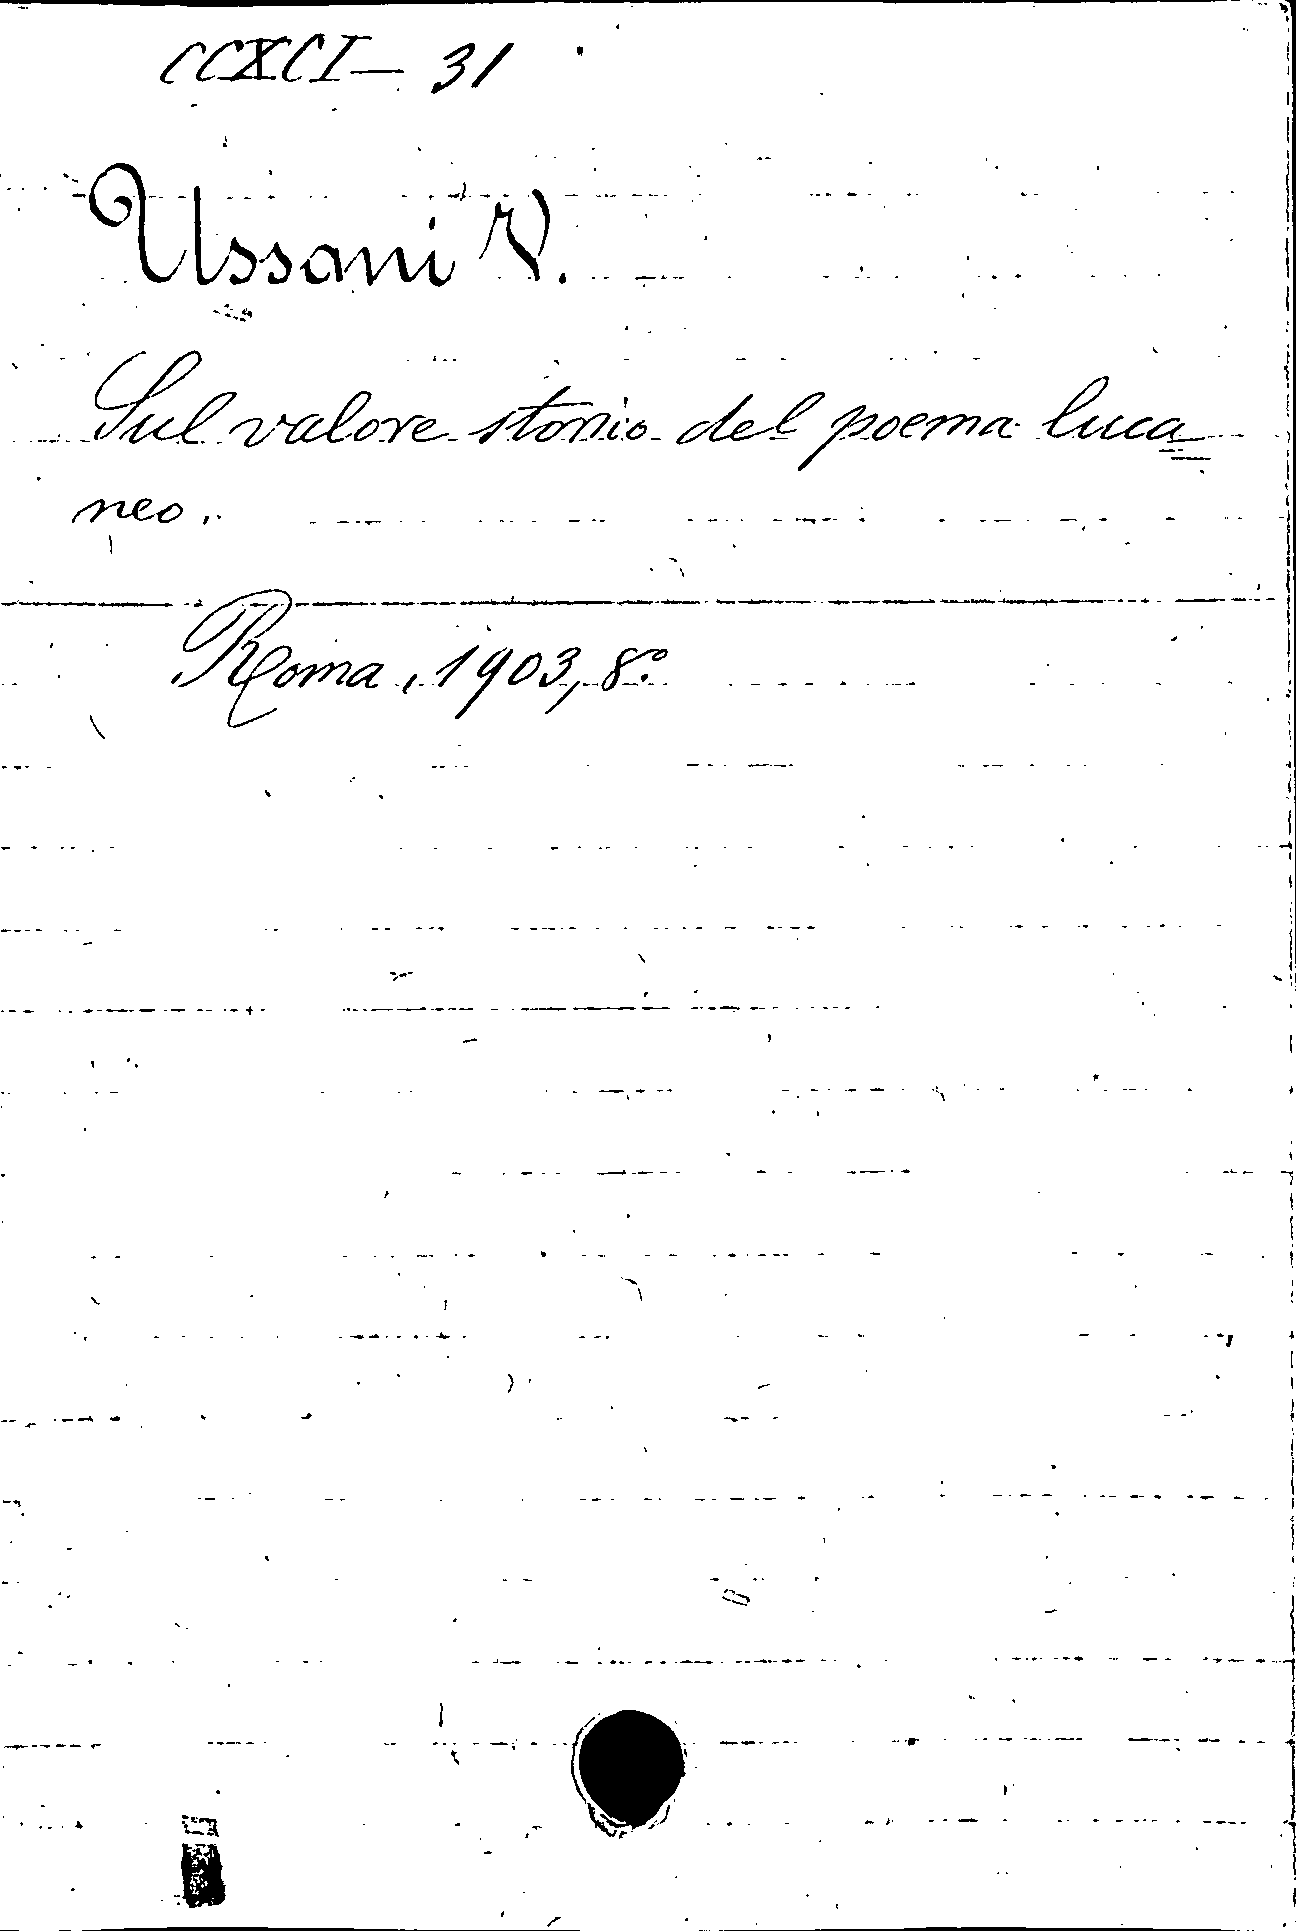 CCXCI — 31
Ussani V.
Sul valore storico del poema luca=
neo.
Roma, 1903, 8.°